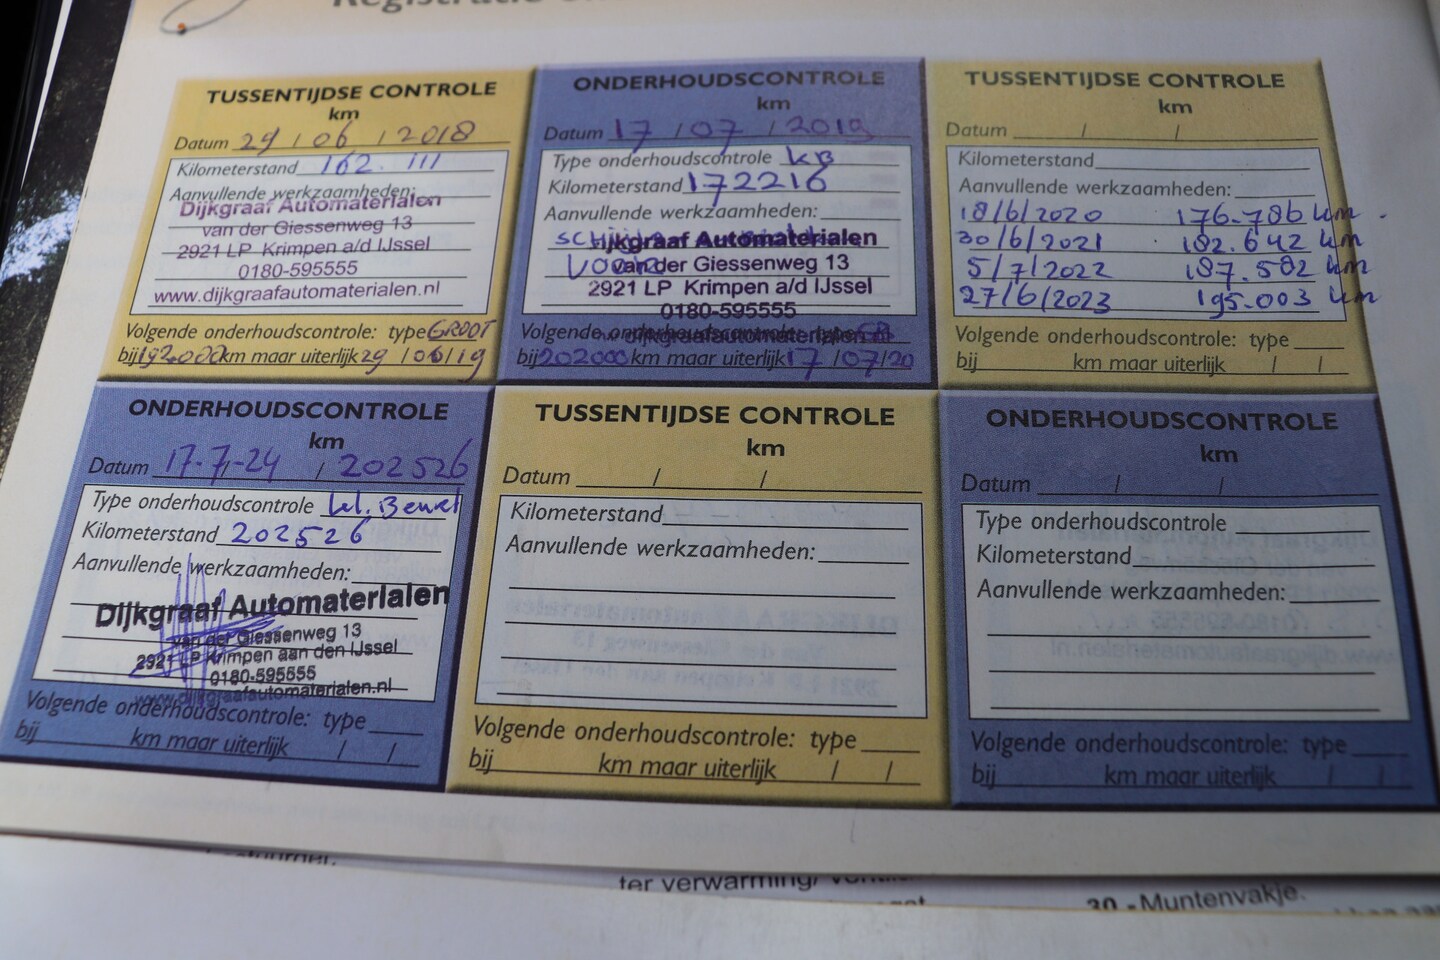 TUSSENTIJDSE CONTROLE
km
Datum 29 / 06 / 2018
Kilometerstand 162.111
Aanvullende werkzaamheden:
Dijkgraaf Automaterialen
van der Giessenweg 13
2921 LP Krimpen a/d IJssel
0180-595555
www.dijkgraafautomaterialen.nl
Volgende onderhoudscontrole: type GROOT
bij 192000 km maar uiterlijk 29 / 06 / 19
ONDERHOUDSCONTROLE
km
Datum 17 / 07 / 2019
Type onderhoudscontrole KB
Kilometerstand 172216
Aanvullende werkzaamheden:
Dijkgraaf Automaterialen
Voor
van der Giessenweg 13
2921 LP Krimpen a/d IJssel
0180-595555
www.dijkgraafautomaterialen.nl
Volgende onderhoudscontrole: type GB
bij 202000 km maar uiterlijk 17 / 07 / 20
TUSSENTIJDSE CONTROLE
km
Datum / /
Kilometerstand
Aanvullende werkzaamheden:
18/6/2020 176.786 km
30/6/2021 182.642 km
5/7/2022 187.582 km
27/6/2023 195.003 km
Volgende onderhoudscontrole: type
bij km maar uiterlijk / /
ONDERHOUDSCONTROLE
km
Datum 17-7-24 / 202526
Type onderhoudscontrole kl. Beurt
Kilometerstand 202526
Aanvullende werkzaamheden:
Dijkgraaf Automaterialen
van der Giessenweg 13
2921 LP Krimpen aan den IJssel
0180-595555
www.dijkgraafautomaterialen.nl
Volgende onderhoudscontrole: type
bij km maar uiterlijk / /
TUSSENTIJDSE CONTROLE
km
Datum / /
Kilometerstand
Aanvullende werkzaamheden:
Volgende onderhoudscontrole: type
bij km maar uiterlijk / /
ONDERHOUDSCONTROLE
km
Datum / /
Type onderhoudscontrole
Kilometerstand
Aanvullende werkzaamheden:
Volgende onderhoudscontrole: type
bij km maar uiterlijk / /
ter verwarming/
30 - Muntenvakje.